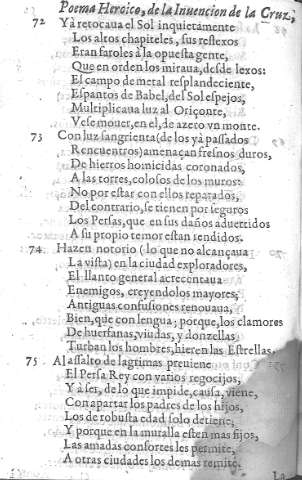 Poema Heroico, de la Inuencion de la Cruz,
72 Yà retocaua el Sol inquietamente
Los altos chapiteles, sus reflexos
Eran faroles à la opuesta gente,
Que en orden los miraua, desde lexos:
El campo de metal resplandeciente,
Espantos de Babel, del Sol espejos,
Multiplicaua luz al Oriçonte,
Vese mouer, en el, de azero vn monte.
73 Con luz sangrienta (de los yà passados
Rencuentros) amenaçan fresnos duros,
De hierros homicidas coronados,
A las torres, colosos de los muros:
No por estar con ellos reparados,
Del contrario, se tienen por seguros
Los Persas, que en sus daños aduertidos
A su propio temor estan rendidos.
74 Hazen notorio (lo que no alcançaua
La vista) en la ciudad exploradores,
El llanto general acrecentaua
Enemigos, creyendolos mayores;
Antiguas confusiones renouaua,
Bien, que con lengua; porque, los clamores
De huerfanas, viudas, y donzellas
Turban los hombres, hieren las Estrellas.
75 Al assalto de lagrimas preuiene
El Persa Rey con varios regocijos,
Y à ser, de lo que impide, causa, viene,
Con apartar los padres de los hijos,
Los de robusta edad solo detiene,
Y porque en la muralla esten mas fijos,
Las amadas consortes les permite,
A otras ciudades los demas remite.
La